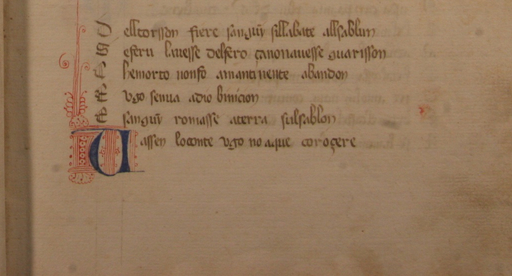 E lletorsson fiere sanguȳ sillabate allsablun
E sseru lauesse delsero ganonauesse guarisson
E hemorto nonso amantinente abandon
E vgo senua adio binicion
E sanguȳ romasse aterra sulsablon
U assen loconte vgo no aque corogere